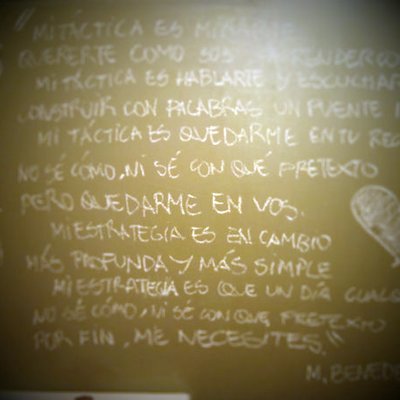 "MI TÁCTICA ES MIRARTE
QUERERTE COMO SOS
MI TÁCTICA ES HABLARTE Y ESCUCHAR
CONSTRUIR CON PALABRAS UN PUENTE
MI TÁCTICA ES QUEDARME EN TU REC
NO SÉ CÓMO, NI SÉ CON QUÉ PRETEXTO
PERO QUEDARME EN VOS.
MI ESTRATEGIA ES EN CAMBIO
MÁS PROFUNDA Y MÁS SIMPLE
MI ESTRATEGIA ES QUE UN DÍA CUALQ
NO SÉ CÓMO, NI SÉ CON QUÉ PRETEXTO
POR FIN, ME NECESITES."
M. BENED